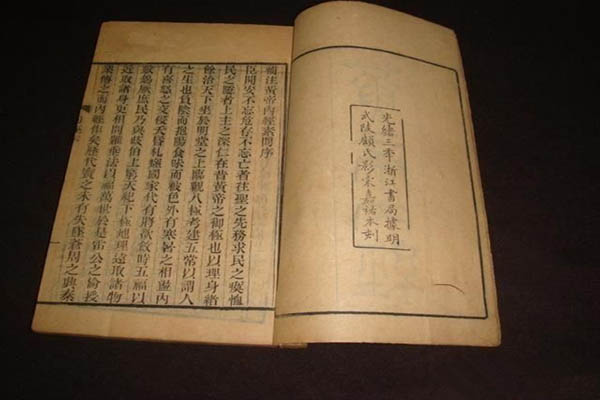 光緒三年浙江書局據明
武陵顧氏影宋嘉祐本刻
補注黃帝內經素問序
臣聞安不忘危存不忘亡者往聖之先務求民之瘼恤
民之隱者上主之深仁在昔黃帝之御極也以理身緒
餘治天下坐於明堂之上臨觀八極考建五常以謂人
之生也負陰而抱陽食味而被色外有寒暑之相盪內
有喜怒之交侵夭昏札瘥國家代有將欲斂時五福以
敷錫厥庶民乃與岐伯上窮天紀下極地理遠取諸物
近取諸身更相問難垂法以福萬世於是雷公之倫授
業傳之而內經作矣歷代寶之未有失墜蒼周之興秦